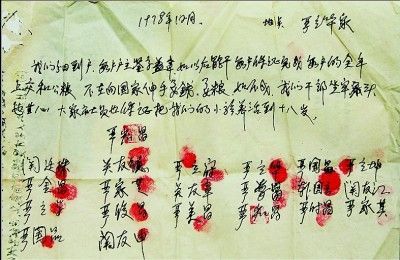 1978年12月. 地点 严立华家
我们分田到户, 每户户主签字盖章, 如以后能干, 每户保证完成每户的全年
上交和公粮. 不在向国家伸手要钱要粮. 如不成, 我们干部坐牢杀头
也干心, 大家社员也保证把我们的小孩养活到十八岁.
严宏昌
关廷珠 关友德 严立富 严立华 严国昌 严立坤
严金昌 严家芝 关友章 严学昌 韩国云 关友江
严立学 严俊昌 严美昌 严宏昌 严付昌 严家其
严国品 关友申